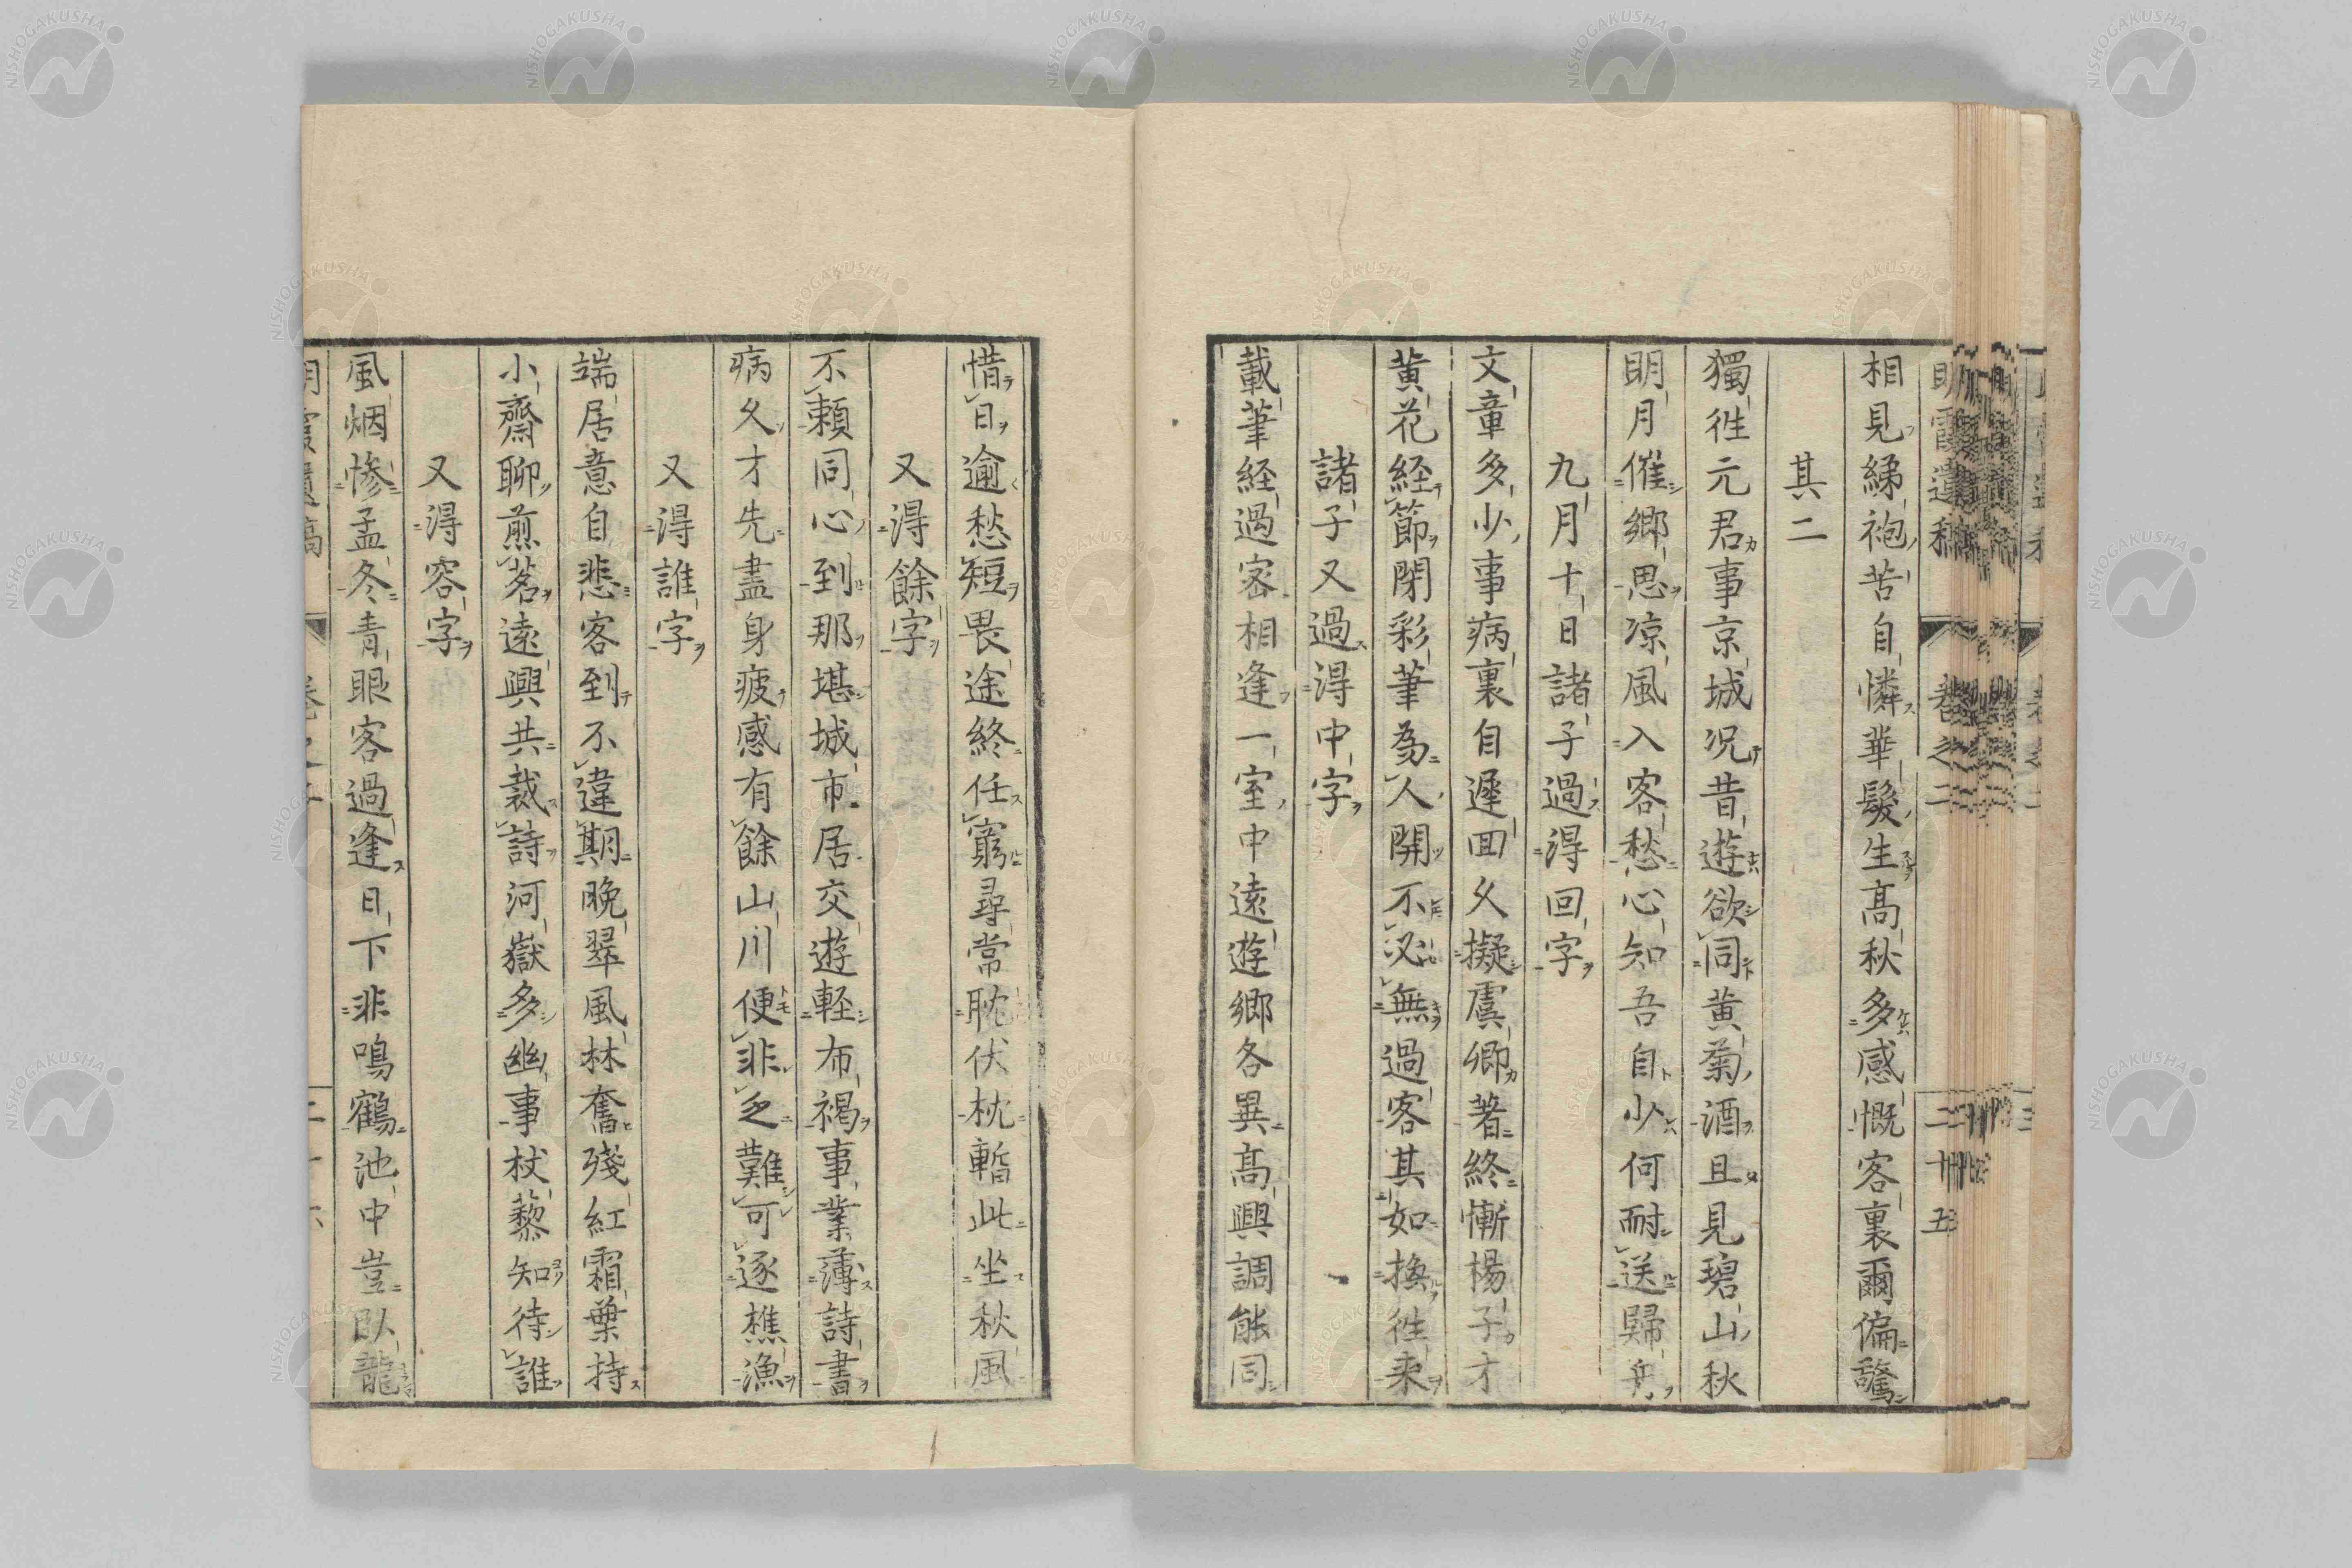 相見綈袍苦自憐華髮生高秋多感慨客裏爾偏驚
其二
獨徃元君事京城况昔遊欲同黄菊酒且見碧山秋
明月催鄉思凉風入客愁心知吾自少何耐送歸舟
九月十日諸子過得回字
文章多少事病裏自遲回久擬虞卿著終慚楊子才
黄花経節閉彩筆為人開不必無過客其如換徃来
諸子又過得中字
載筆経過密相逢一室中遠遊鄉各異高興調能同
惜日逾愁短畏途終任窮尋常耽伏枕暫此坐秋風
又得餘字
不頼同心到那堪城市居交遊軽布褐事業薄詩書
病久才先盡身疲感有餘山川便非乏難可逐樵漁
又得誰字
端居意自悲客到不違期晩翠風林奮殘紅霜葉持
小齋聊煎茗遠興共裁詩河嶽多幽事杖藜知待誰
又得容字
風烟惨孟冬青眼客過逢日下非鳴鶴池中豈臥龍
明霞遺稿 卷之二 二十五
NISHOGAKUSHA